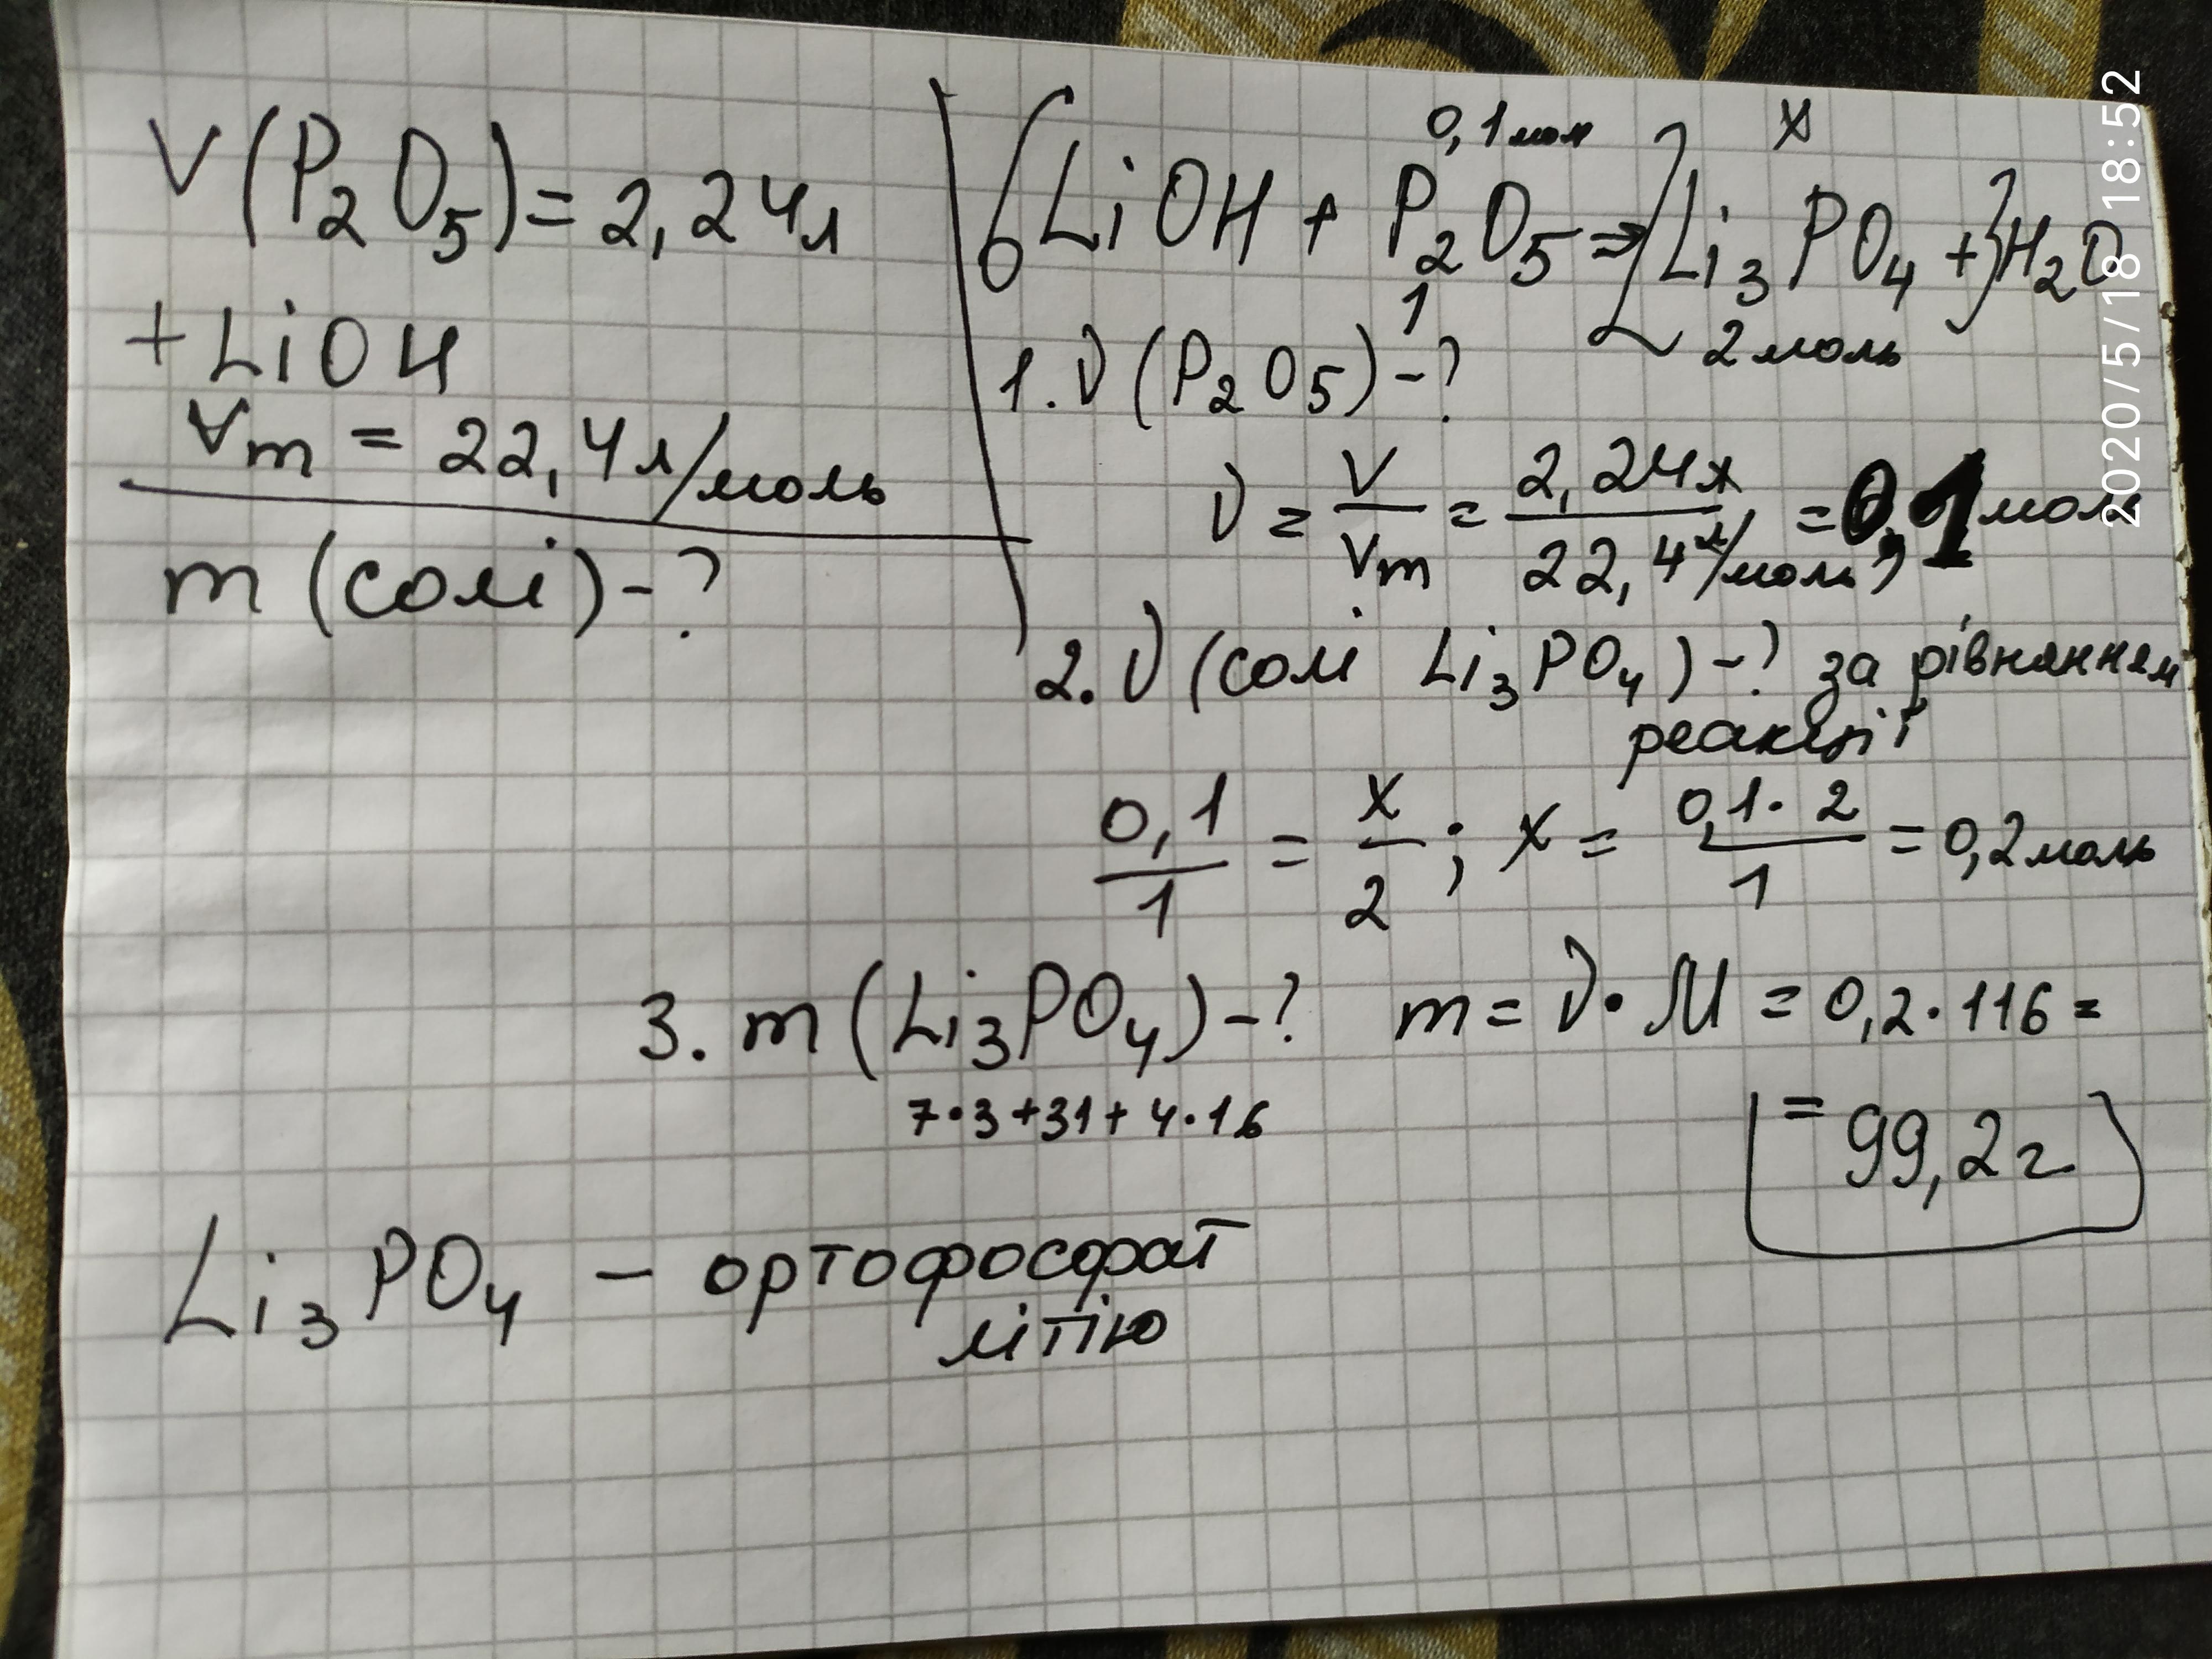 V(P₂O₅) = 2,24л
+ LiOH
Vm = 22,4 л/моль
m (солі) - ?
0,1 мол x
6LiOH + P₂O₅ ⇒ 2Li₃PO₄ + 3H₂O
1 2 моль
1. ν (P₂O₅) - ?
ν = V/Vm = 2,24л / 22,4 л/моль = 0,1 моль
2. ν (солі Li₃PO₄) - ? за рівнянням
реакції
0,1/1 = x/2 ; x = 0,1·2/1 = 0,2 моль
3. m (Li₃PO₄) - ? m = ν · M = 0,2 · 116 =
7·3+31+4·16
= 99,2г
Li₃PO₄ – ортофосфат
літію
2020/5/18 18:52